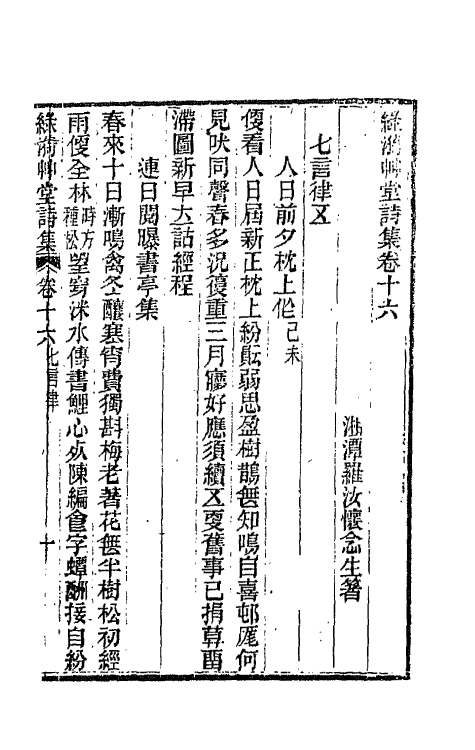 綠漪艸堂詩集卷十六
湘潭羅汝懷念生著
七言律五
人日前夕枕上作己未
僾看人日屆新正枕上紛紜弱思盈樹鵲無知鳴自喜邨厖何
見吠同聲春多況復重三月癠好應須續五更舊事已捐草酉
滯圖新早太話經程
連日閱曝書亭集
春來十日漸鳴禽冬釀寒宵費獨斟梅老著花無半樹松初經
雨僾全林時方種松望窮洣水傳書鯉心夊陳編食字蟫酬接自紛
綠漪艸堂詩集 卷十六七言律 十